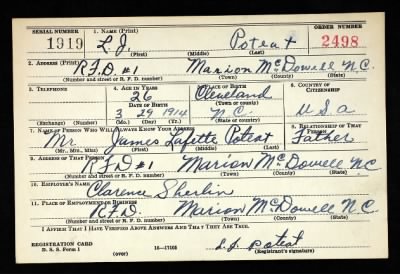 SERIAL NUMBER 1. NAME (Print) ORDER NUMBER
1919 L. J. Poteat 2498
(First) (Middle) (Last)
2. ADDRESS (Print)
R.F.D. #1 Marion McDowell N.C.
(Number and street or R. F. D. number) (Town) (County) (State)
3. TELEPHONE 4. AGE IN YEARS 5. PLACE OF BIRTH 6. COUNTRY OF CITIZENSHIP
26 Cleveland
DATE OF BIRTH (Town or county)
3 29 1914 N.C. U S A
(Exchange) (Number) (Mo.) (Day) (Yr.) (State or country)
7. NAME OF PERSON WHO WILL ALWAYS KNOW YOUR ADDRESS 8. RELATIONSHIP OF THAT PERSON
Mr. James Lafette Poteat Father
(Mr., Mrs., Miss) (First) (Middle) (Last)
9. ADDRESS OF THAT PERSON
R.F.D #1 Marion McDowell N.C
(Number and street or R. F. D. number) (Town) (County) (State)
10. EMPLOYER'S NAME
Clarence Sherlin
11. PLACE OF EMPLOYMENT OR BUSINESS
R.F.D. Marion McDowell N.C.
(Number and street or R. F. D. number) (Town) (County) (State)
I AFFIRM THAT I HAVE VERIFIED ABOVE ANSWERS AND THAT THEY ARE TRUE.
REGISTRATION CARD
D. S. S. Form 1 16—17105 L. J. Poteat
(over) (Registrant's signature)